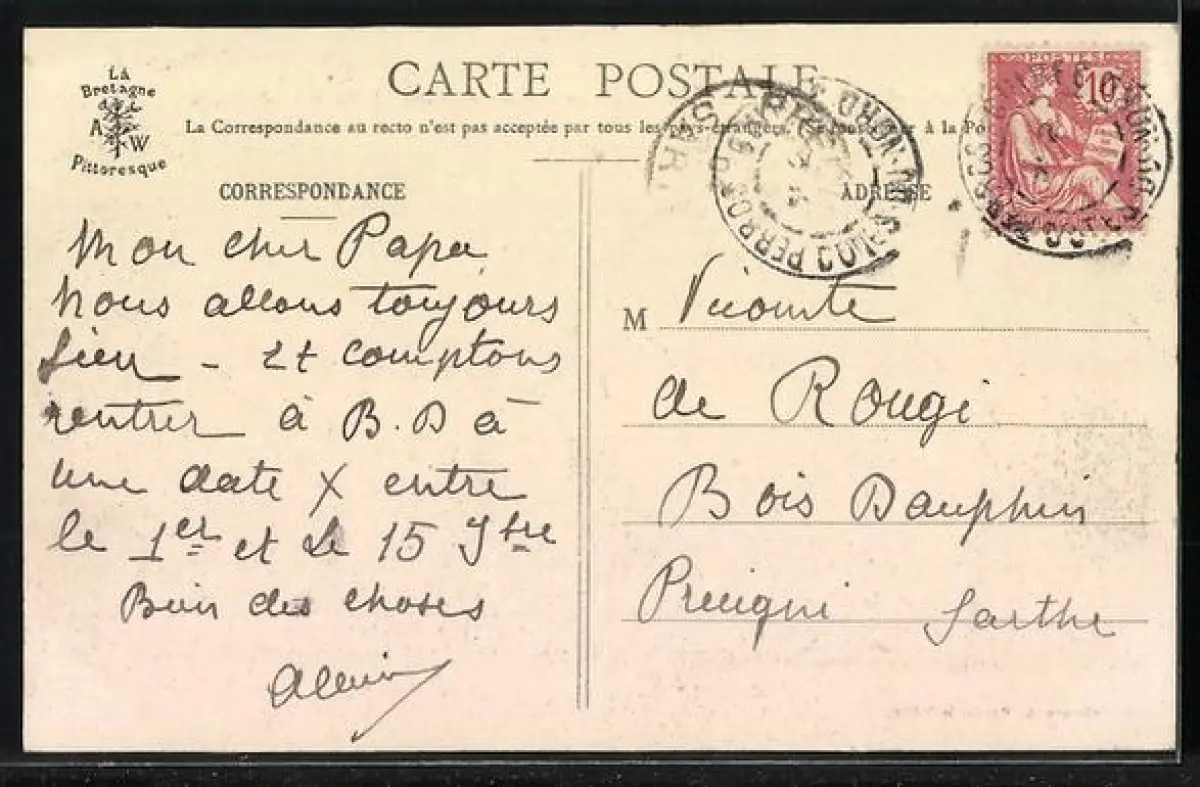 LA
Bretagne
A W
Pittoresque
CARTE POSTALE
La Correspondance au recto n'est pas acceptée par tous les pays étrangers. (Se à la Po
CORRESPONDANCE
ADRESSE
POSTES
10
PERROS-GUIREC
COTES-DU-NORD
PERROS
COTES DU NORD
SAR
Mon cher Papa
Nous allons toujours
bien - Et comptons
rentrer à B.D à
une date X entre
le 1er et le 15 7bre
Bien des choses
Alain
M Vicomte
de Rougé
Bois Dauphin
Précigné Sarthe